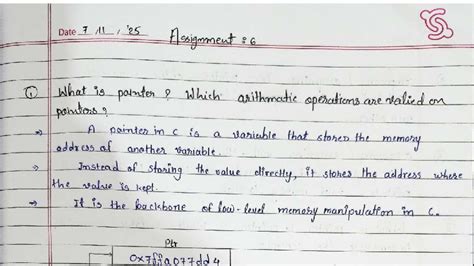 Date 7/11/'25
Assignment : 6
① What is pointer ? Which arithmatic operations are valied on
pointers ?
⇒ A pointer in C is a variable that stored the memory
address of another variable.
⇒ Instead of storing the value directly, it stores the address where
the value is kept.
⇒ It is the backbone of low-level memory manipulation in C.
Ptr